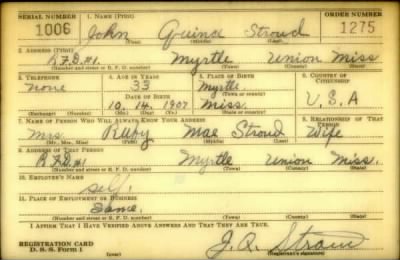 SERIAL NUMBER 1. NAME (Print) ORDER NUMBER
1006 John Quince Stroud 1275
(First) (Middle) (Last)
2. ADDRESS (Print)
R.F.D. #1 Myrtle Union Miss
(Number and street or R. F. D. number) (Town) (County) (State)
3. TELEPHONE 4. AGE IN YEARS 5. PLACE OF BIRTH 6. COUNTRY OF CITIZENSHIP
None 33 Myrtle
DATE OF BIRTH (Town or county)
10. 14. 1907 Miss. U.S.A
(Exchange) (Number) (Mo.) (Day) (Yr.) (State or country)
7. NAME OF PERSON WHO WILL ALWAYS KNOW YOUR ADDRESS 8. RELATIONSHIP OF THAT PERSON
Mrs. Ruby Mae Stroud Wife
(Mr., Mrs., Miss) (First) (Middle) (Last)
9. ADDRESS OF THAT PERSON
R.F.D. #1 Myrtle Union Miss.
(Number and street or R. F. D. number) (Town) (County) (State)
10. EMPLOYER'S NAME
self.
11. PLACE OF EMPLOYMENT OR BUSINESS
Same.
(Number and street or R. F. D. number) (Town) (County) (State)
I AFFIRM THAT I HAVE VERIFIED ABOVE ANSWERS AND THAT THEY ARE TRUE.
REGISTRATION CARD
D. S. S. Form 1 J. Q. Stroud
(Registrant's signature)